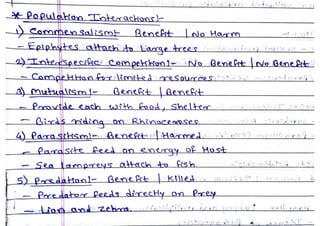 * Population Interactions:-
1) Commensalism:- Benefit | No Harm
- Epiphytes attach to Large trees
2) Interspecific Competition:- No Benefit | No Benefit
- Competition for limited resources
3) Mutualism:- Benefit | Benefit
- Provide each with food, Shelter
- Birds riding on Rhinoceroses.
4) Parasitism:- Benefit | Harmed
- Parasite feed on energy of Host
- Sea lampreys attach to fish
5) Predation:- Benefit | Killed
- Predator feeds directly on Prey
- Lion and Zebra.